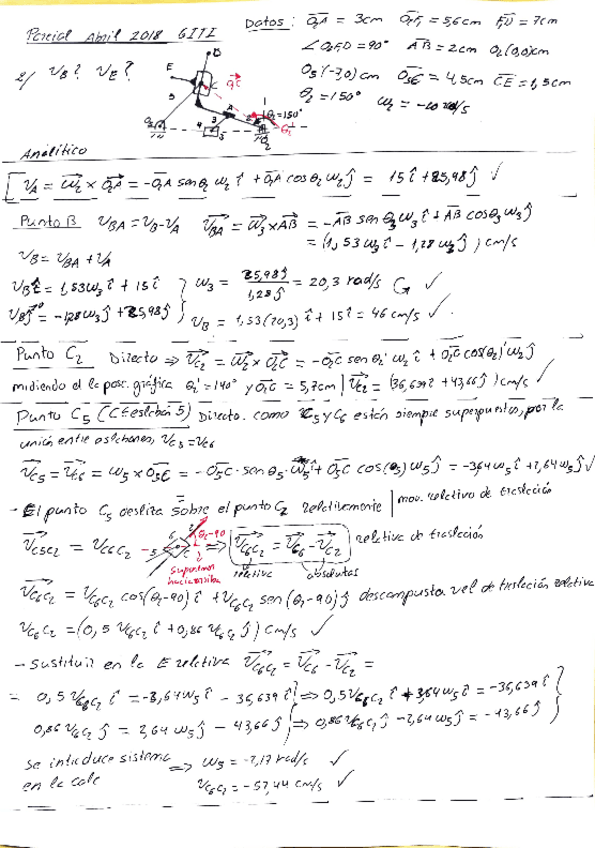 Parcial Abril 2018 GITI
Datos: O₂A = 3cm O₂F₂ = 5,6cm F₂D = 7cm
∠O₂F₂D = 90° AB = 2cm O₂(0,0)cm
2/ V_B? V_E?
O₅(-7,0)cm O₅C = 4,5cm CE = 1,5cm
θ₂ = 150° ω₂ = -10 rad/s
Analítico
V_A = ω₂ × O₂A = -O₂A senθ₂ ω₂ î + O₂A cosθ₂ ω₂ ĵ = 15 î + 25,98 ĵ ✓
Punto B V_BA = V_B - V_A V_BA = ω₃ × AB = -AB senθ₃ ω₃ î + AB cosθ₃ ω₃ ĵ
= (1,53 ω₃ î - 1,28 ω₃ ĵ) cm/s
V_B = V_BA + V_A
V_B î = 1,53ω₃ î + 15 î
ω₃ = 25,98ĵ / 1,28ĵ = 20,3 rad/s ✓
V_B ĵ = -1,28ω₃ ĵ + 25,98 ĵ
V_B = 1,53(20,3) î + 15 î = 46 cm/s ✓
Punto C₂ Directo ⇒ V_C₂ = ω₂ × O₂C = -O₂C sen θ₂' ω₂ î + O₂C cos(θ₂') ω₂ ĵ
midiendo el la pos. gráfica θ₂' = 140° y O₂C = 5,7cm | V_C₂ = (36,639 î + 43,66 ĵ) cm/s ✓
Punto C₅ (C E eslabón 5) Directo. como C₅ y C₆ están siempre superpuestos, por la
unión entre eslabones, V_C₅ = V_C₆
V_C₅ = V_C₆ = ω₅ × O₅C = -O₅C · sen θ₅ · ω₅ î + O₅C cos(θ₅) ω₅ ĵ = -3,64 ω₅ î + 2,64 ω₅ ĵ ✓
- El punto C₅ desliza sobre el punto C₂ relativamente | mov. relativo de traslación
V_C₅C₂ = V_C₆C₂ ⇒ V_C₆C₂ = V_C₆ - V_C₂ relativa de traslación
θ₂-90
suponemos
hacia arriba
relativa absolutas
V_C₆C₂ = V_C₆C₂ cos(θ₂-90) î + V_C₆C₂ sen(θ₂-90) ĵ descompuesta vel de traslación relativa
V_C₆C₂ = (0,5 V_C₆C₂ î + 0,86 V_C₆C₂ ĵ) cm/s ✓
- Sustituir en la E relativa V_C₆C₂ = V_C₆ - V_C₂ =
= 0,5 V_C₆C₂ î = -3,64 ω₅ î - 36,639 î ⇒ 0,5 V_C₆C₂ î + 3,64 ω₅ î = -36,639 î
0,86 V_C₆C₂ ĵ = 2,64 ω₅ ĵ - 43,66 ĵ ⇒ 0,86 V_C₆C₂ ĵ - 2,64 ω₅ ĵ = -43,66 ĵ
se introduce sistema ⇒ ω₅ = -2,17 rad/s ✓
en la calc V_C₆C₂ = -57,44 cm/s ✓